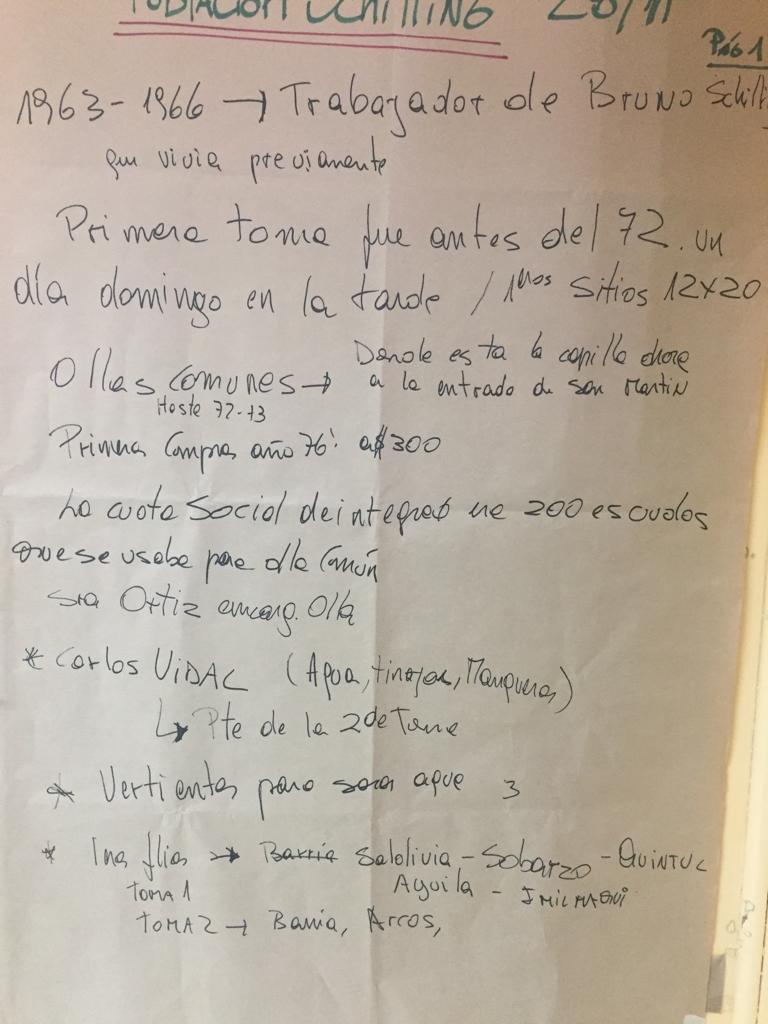 Población Schilling 20/11
Pág 1
1963-1966 → Trabajador de Bruno Schill
que vivia previamente
Primera toma fue antes del 72. un
día domingo en la tarde / 1ros Sitios 12x20
Ollas comunes → Donde esta la capilla ahora
a la entrada de san Martin
Hasta 72-73
Primera Compra año 76' a $300
La cuota Social de integras 200 escudos
que se usaba para olla Común
Sra Ortiz encarg. Olla
* Carlos VIDAL (Agua, tinajas, Mangueras)
↳ Pte de la 2da Toma
* Vertientes para sacar agua 3
* 1ras flias → Barría Saldivia - Sobarzo - QUINTUL
TOMA 1 Aguila - IMILMAQUI
TOMA 2 → Barría, Arcos,